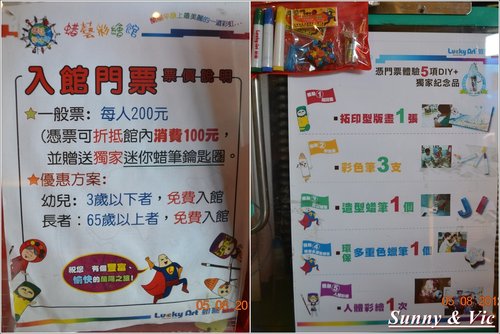 蜡藝彩繪館
入館門票 票價說明
一般票: 每人200元
(憑票可折抵館內消費100元,
並贈送獨家迷你蜡筆鑰匙圈。
優惠方案:
幼兒: 3歲以下者, 免費入館
長者: 65歲以上者, 免費入館
祝您 有個豐富、
愉快的蘭陽之旅!
Lucky Art
Lucky Art
憑門票體驗5項DIY+
獨家紀念品
拓印型版畫1張
彩色筆3支
造型蜡筆1個
環保 多重色蠟筆1個
人體彩繪1次
Lucky Art
05.08.2012
Sunny & Vic